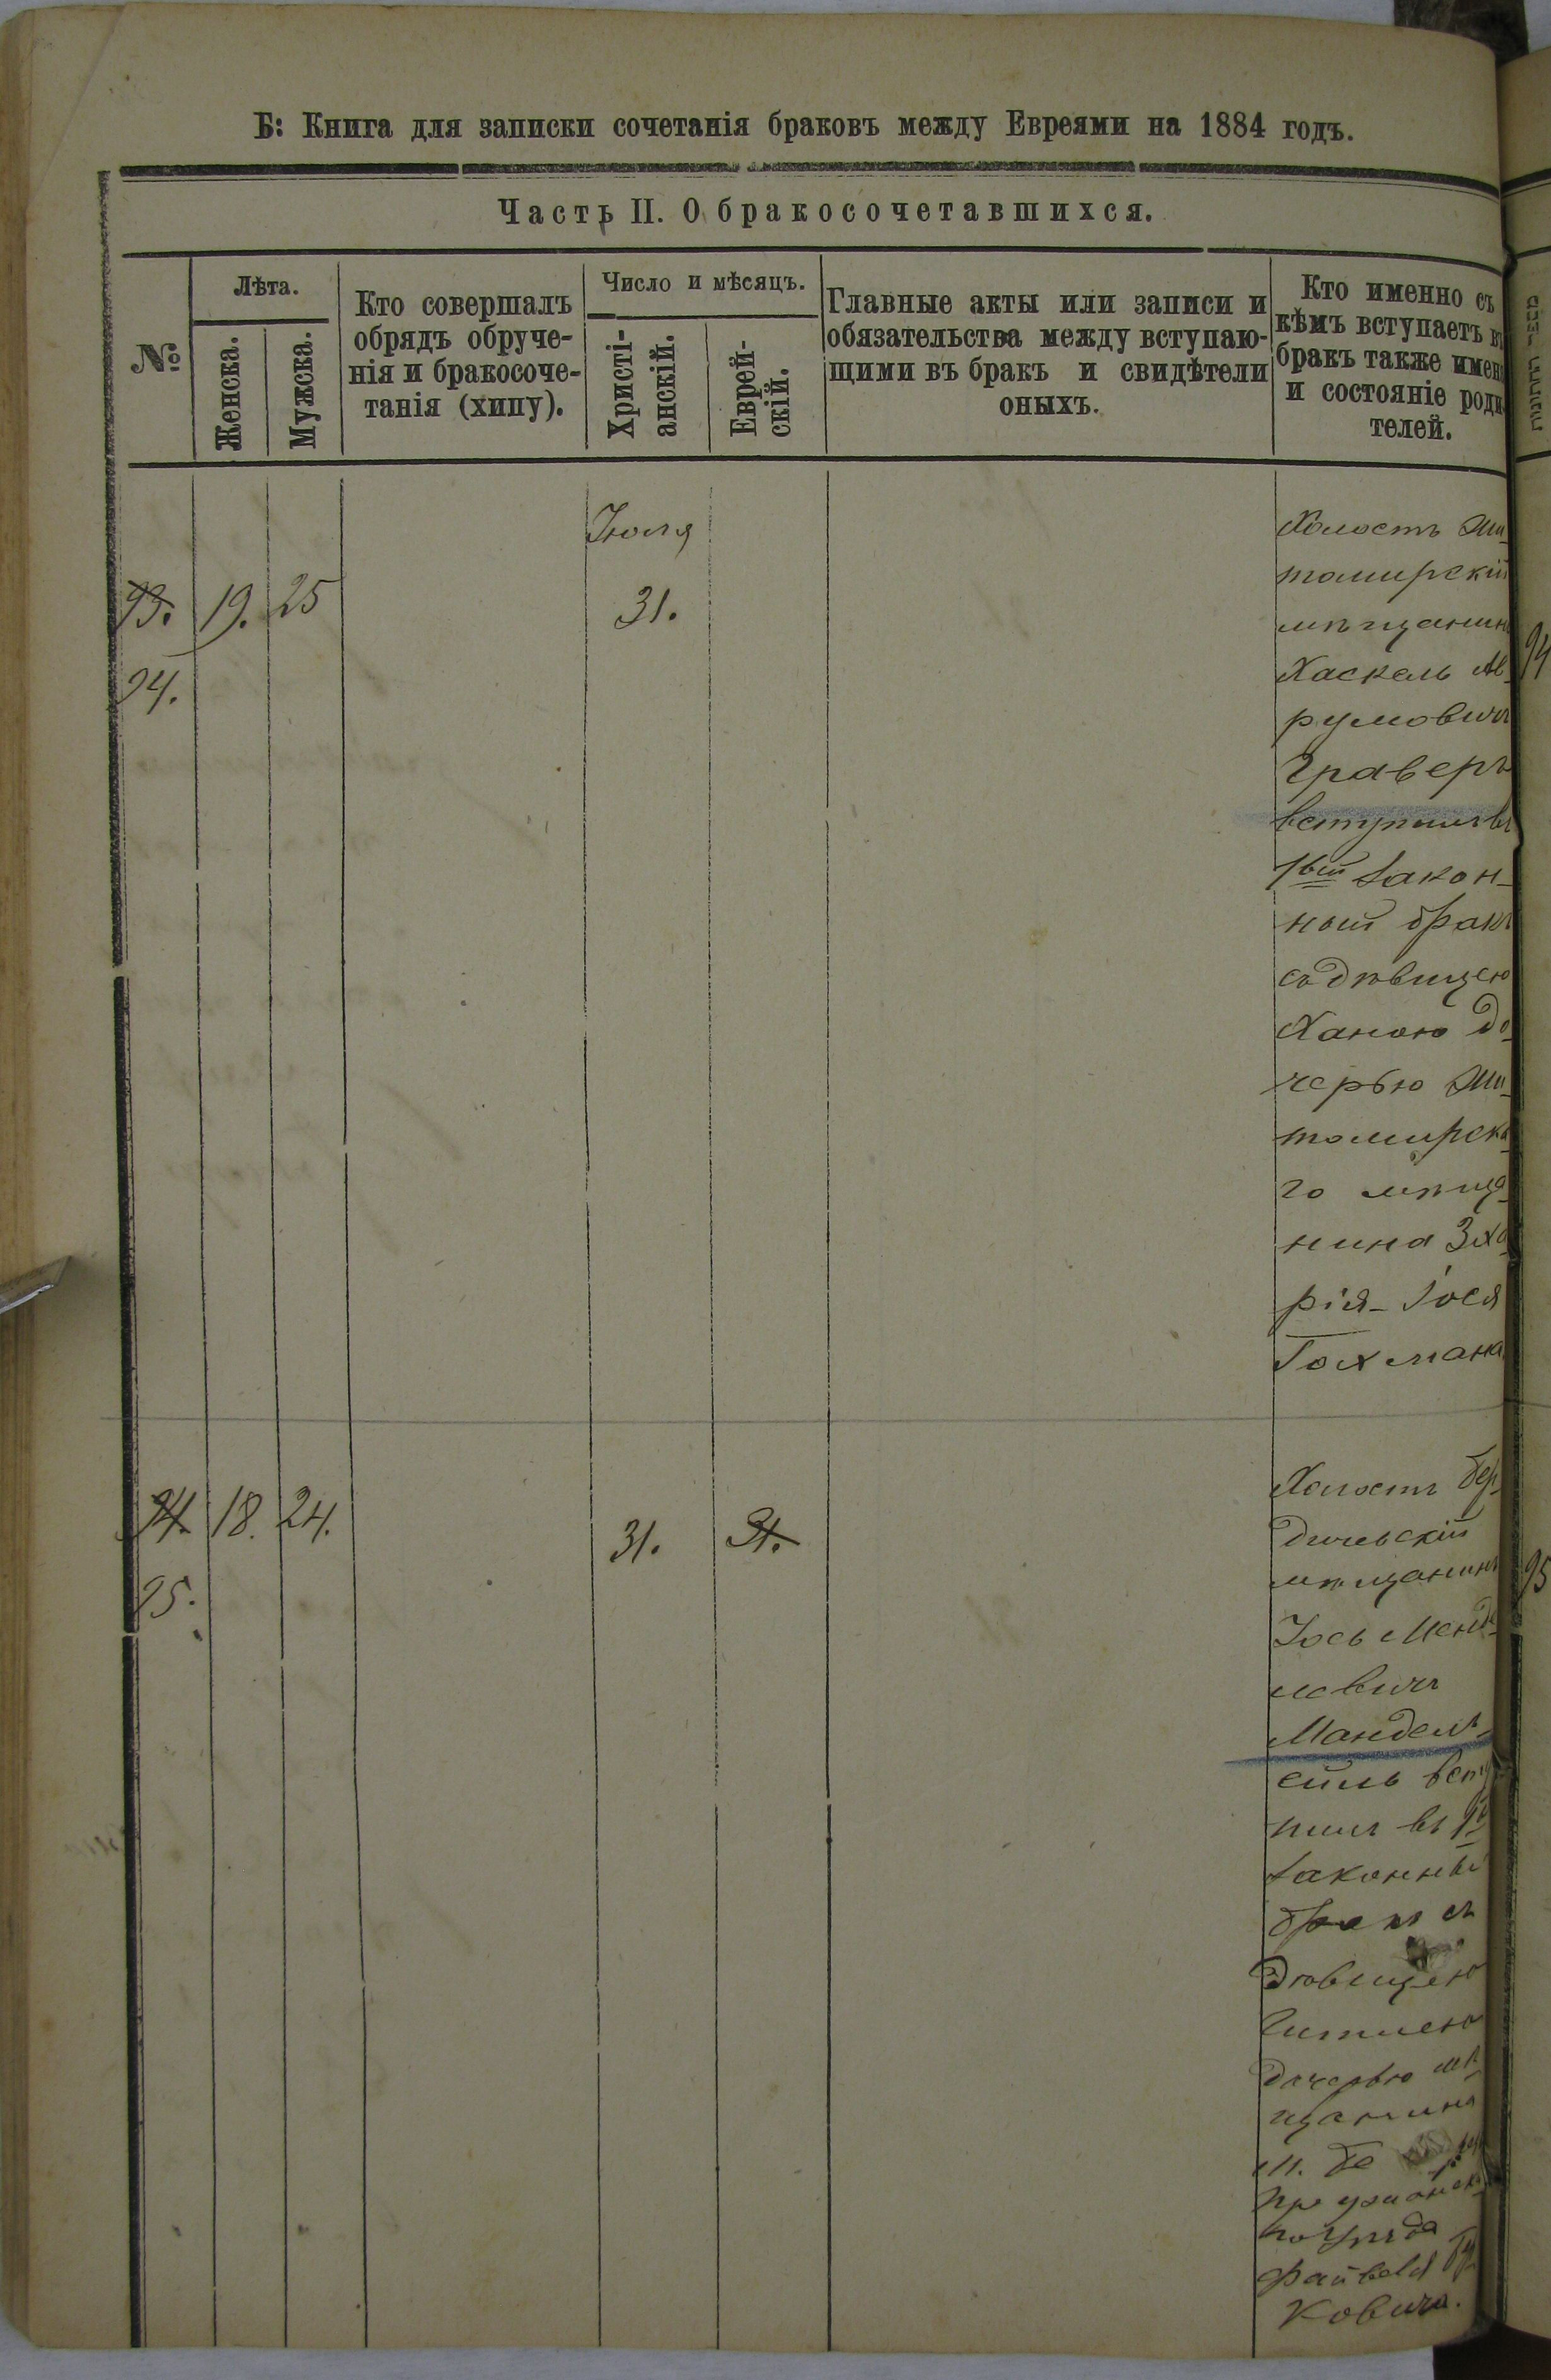 Б: Книга для записки сочетанія браковъ между Евреями на 1884 годъ.
Часть II. О бракосочетавшихся.
№
Лѣта.
Женска.
Мужска.
Кто совершалъ
обрядъ обруче-
нія и бракосоче-
танія (хипу).
Число и мѣсяцъ.
Христі-
анскій.
Еврей-
скій.
Главные акты или записи и
обязательства между вступаю-
щими въ бракъ и свидѣтели
оныхъ.
Кто именно съ
кѣмъ вступаетъ въ
бракъ также имена
и состояніе роди-
телей.
Іюля
93. 19. 25 31.
94.
Холостъ Жи-
томирскій
мѣщанинъ
Хаскель Ав-
румовичъ
Граверъ
вступилъ въ
1вый закон-
ный бракъ
съ дѣвицею
Ханою до-
черью Жи-
томирска-
го мѣща-
нина Зха-
рія-Іося
Гохмана
94. 18. 24. 31. 31.
95.
Холостъ Бер-
дичевскій
мѣщанинъ
Іось Менде-
левичъ
Мандель-
ейль всту-
пилъ въ 1й
законный
бракъ съ
дѣвицею
Гитлею
дочерью мѣ-
щанина
м. Бе
Пружанска-
го уѣзда
Файвеля
ковича.
94
95